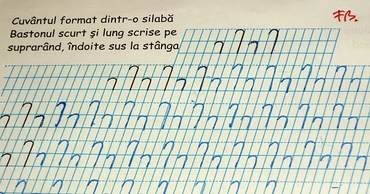 Cuvântul format dintr-o silabă
Bastonul scurt și lung scrise pe
suprarând, îndoite sus la stânga
FB.